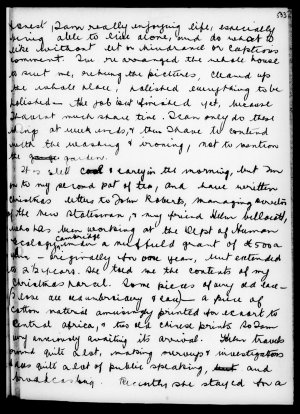 honest, I am really enjoying life, especially
being able to live alone, and do what I
like without let or hindrance or captious
comment. I've re-arranged the whole house
to suit me, rehung the pictures, cleaned up
the whole place, polished everything to be
polished – the job isn't finished yet, because
I haven't much spare time. I can only do these
things at week-ends, & then I have to contend
with the washing & ironing, not to mention
the garden.
It is still cool & early in the morning, but I'm
on to my second pot of tea, and have written
Christmas letters to John Roberts, managing director
of the New Statesman, & my friend Helen
who has been working at the Dept of Human
Ecology, Cambridge, under a Nuffield grant of £5000
originally for one year, but extended
to 2½ years. She told me the contents of my
Christmas parcel. Some pieces of very old
lace
a piece of
cotton material amusingly printed for export to
Central Africa, & two old Chinese prints. So I am
very anxiously awaiting its arrival. Helen travels
round quite a lot, making surveys & investigations
& does quite a lot of public speaking, and
broadcasting. Recently she stayed for a